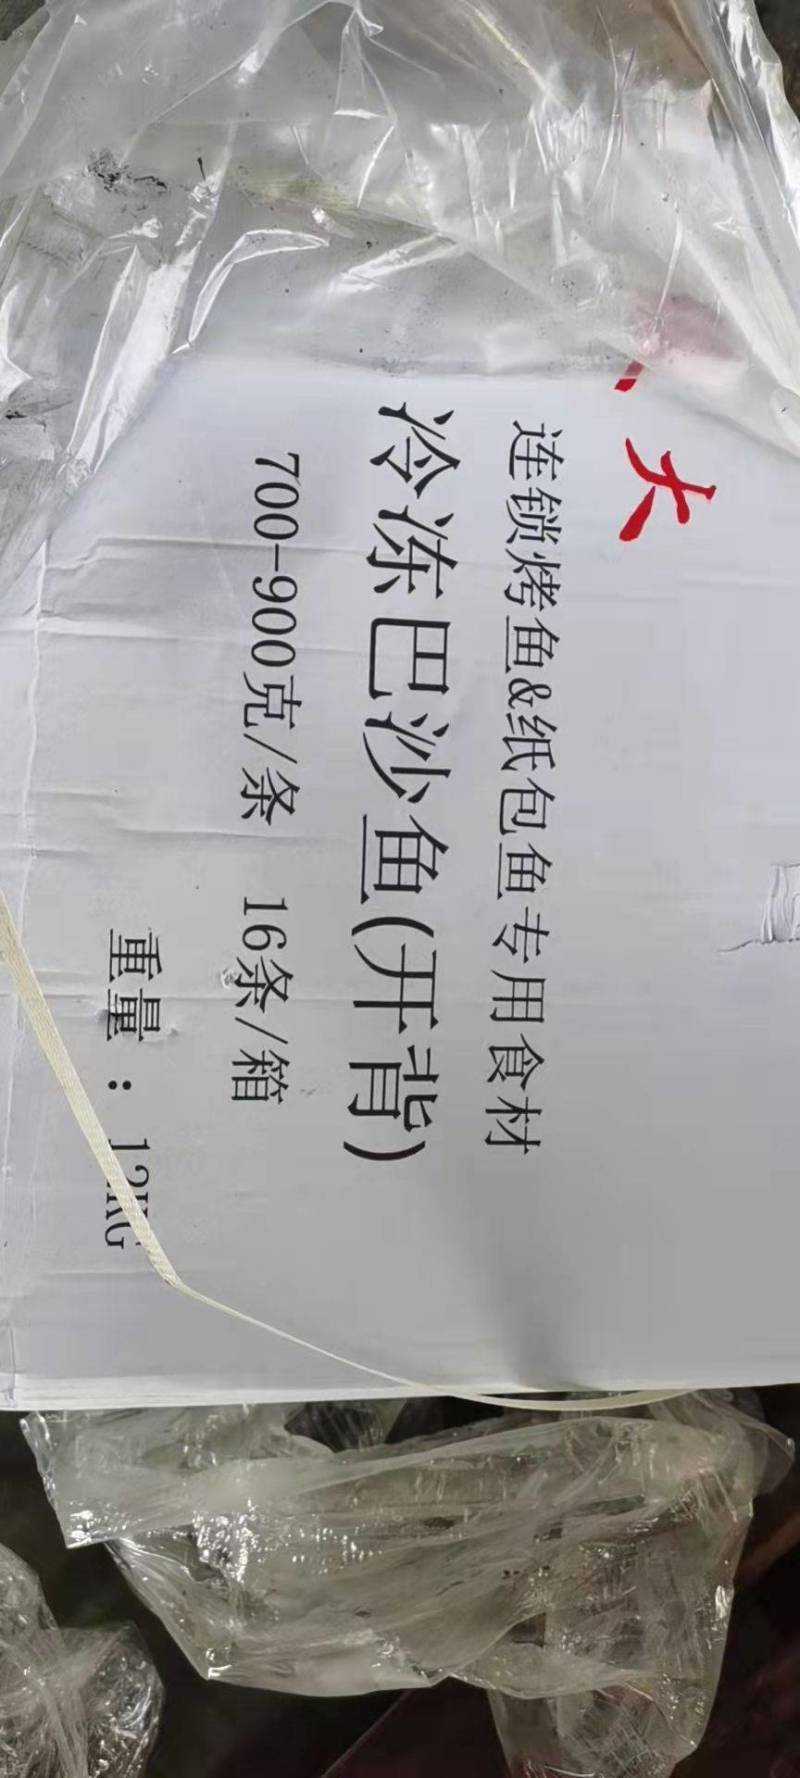 大
连锁烤鱼&纸包鱼专用食材
冷冻巴沙鱼(开背)
700-900克/条 16条/箱
重量：12KG